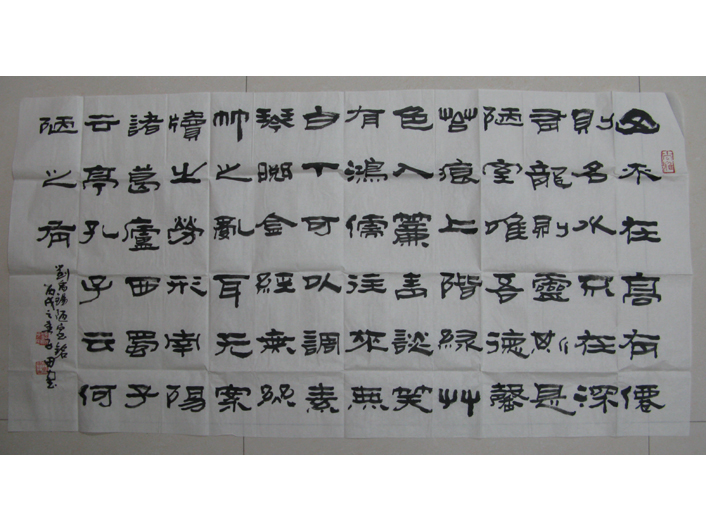 山不在高有僊
則名水不在深
有龍則靈斯是
陋室唯吾德馨
苔痕上階緑艸
色入簾青談笑
有鴻儒往來無
白丁可以調素
琴閲金經無絲
竹之亂耳无案
牘之勞形南陽
諸葛廬西蜀子
云亭孔子云何
陋之有
劉禹錫陋室銘
丙戌之夏